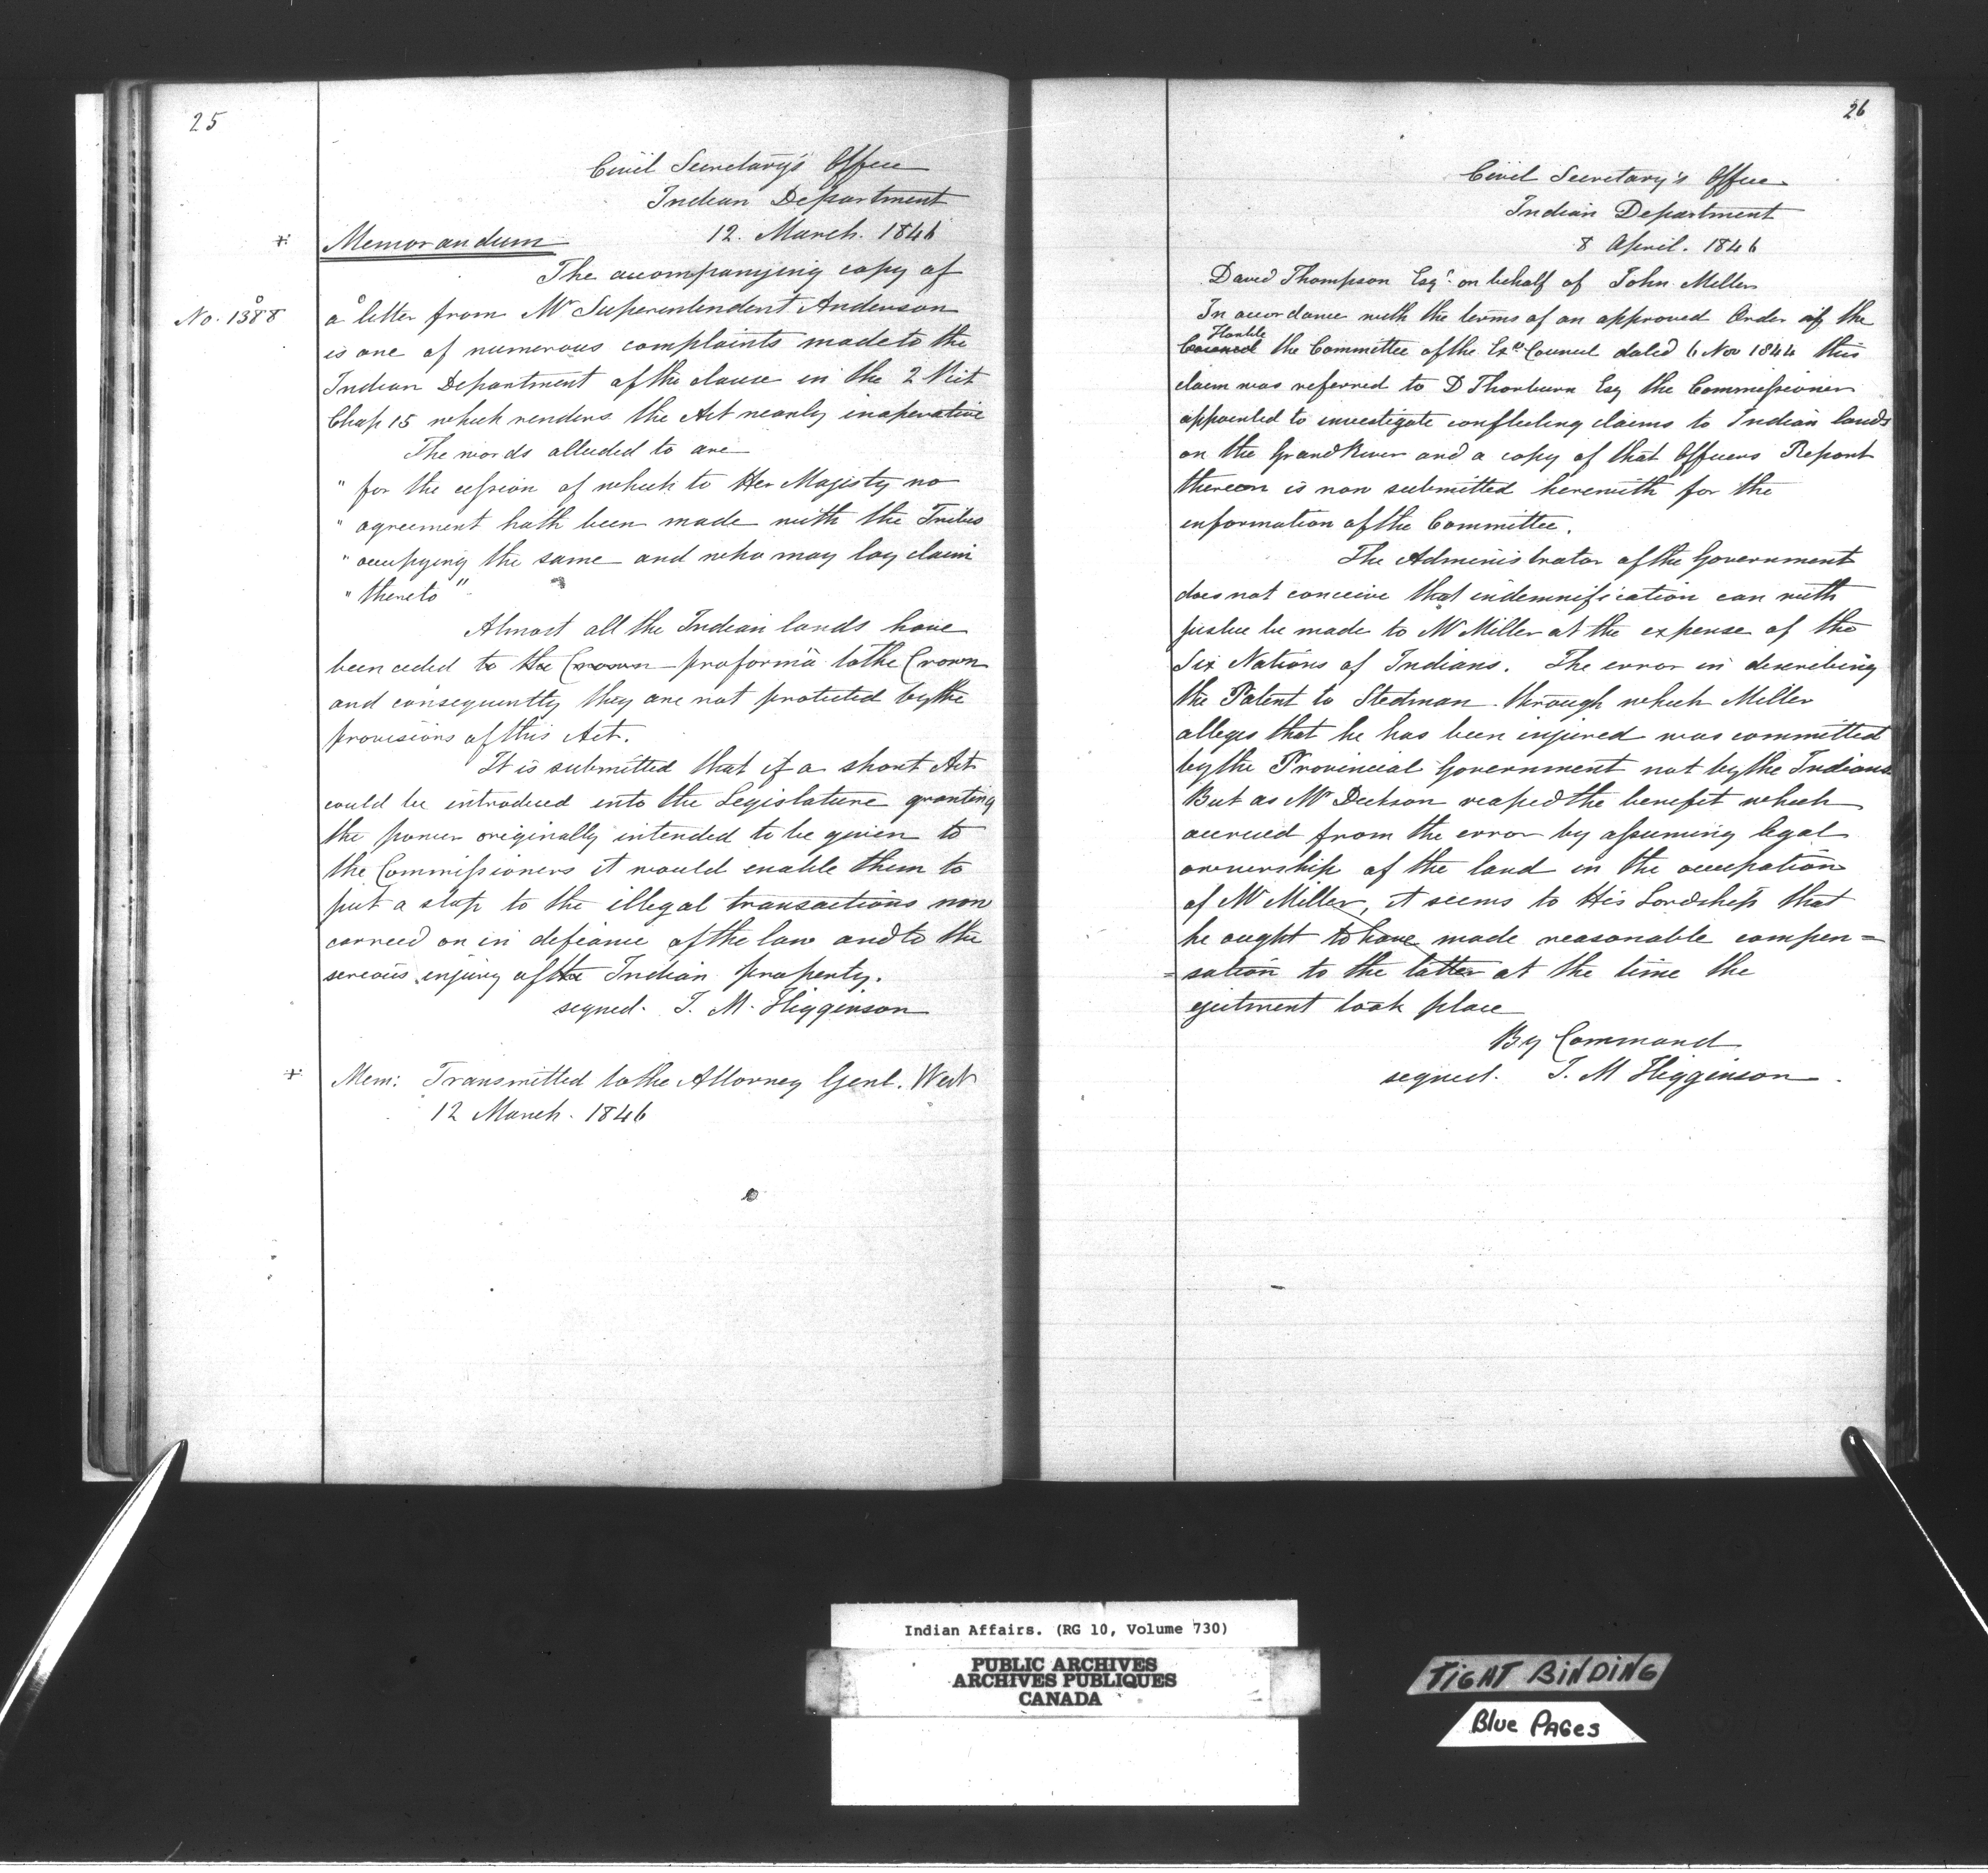 25
Civil Secretary's Office
Indian Department
12. March. 1846
Memorandum
The accompanying copy of
No. 1388
a letter from Mr Superintendent Anderson
is one of numerous complaints made to the
Indian Department of the clause in the 2 Vict
Chap 15 which renders the Act nearly inoperative
The words alluded to are
" for the cession of which to Her Majesty no
" agreement hath been made with the Tribes
" occupying the same and who may lay claim
" thereto"
Almost all the Indian lands have
been ceded to the Crown proforma to the Crown
and consequently they are not protected by the
provisions of this Act.
It is submitted that if a short Act
could be introduced into the Legislature granting
the power originally intended to be given to
the Commissioners it would enable them to
put a stop to the illegal transactions now
carried on in defiance of the law and to the
serious injury of the Indian property.
signed. J. M. Higginson
+ Mem: Transmitted to the Attorney Genl. West
12 March. 1846
26
Civil Secretary's Office
Indian Department
8 April. 1846
David Thompson Esqr. on behalf of John Miller
In accordance with the terms of an approved Order of the
Honble
Council the Committee of the Exve Council dated 6 Nov 1844 this
claim was referred to D Thorburn Esq the Commissioner
appointed to investigate conflicting claims to Indian lands
on the Grand River and a copy of that Officers Report
thereon is now submitted herewith for the
information of the Committee.
The Administrator of the Government
does not conceive that indemnification can with
justice be made to Mr Miller at the expense of the
Six Nations of Indians. The error in describing
the Patent to Stedman through which Miller
alleges that he has been injured was committed
by the Provincial Government not by the Indians
But as Mr Dickson reaped the benefit which
accrued from the error by assuming legal
ownership of the land in the occupation
of Mr Miller, it seems to His Lordship that
he ought to have made reasonable compen=
=sation to the latter at the time the
ejectment took place
By Command
signed. J. M Higginson
Indian Affairs. (RG 10, Volume 730)
PUBLIC ARCHIVES
ARCHIVES PUBLIQUES
CANADA
TIGHT BINDING
Blue PAGes